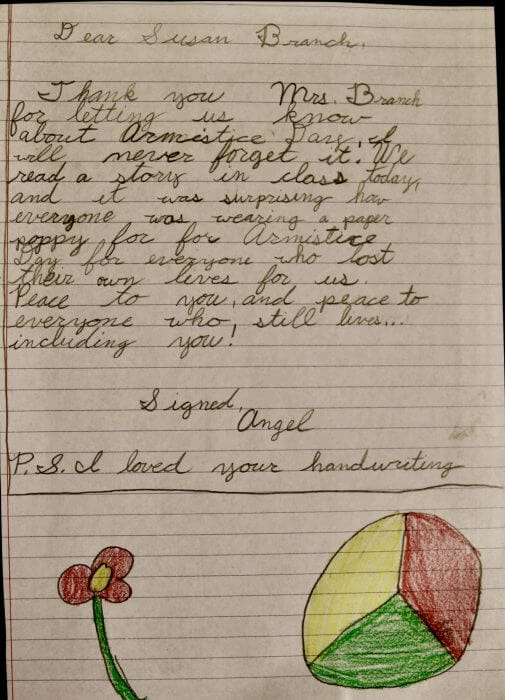 Dear Susan Branch,
Thank you Mrs. Branch
for letting us know
about Armistice Day, I
will never forget it. We
read a story in class today,
and it was surprising how
everyone was wearing a paper
poppy for for Armistice
Day for everyone who lost
their own lives for us.
Peace to you, and peace to
everyone who, still lives...
including you!
Signed,
Angel
P.S. I loved your handwriting